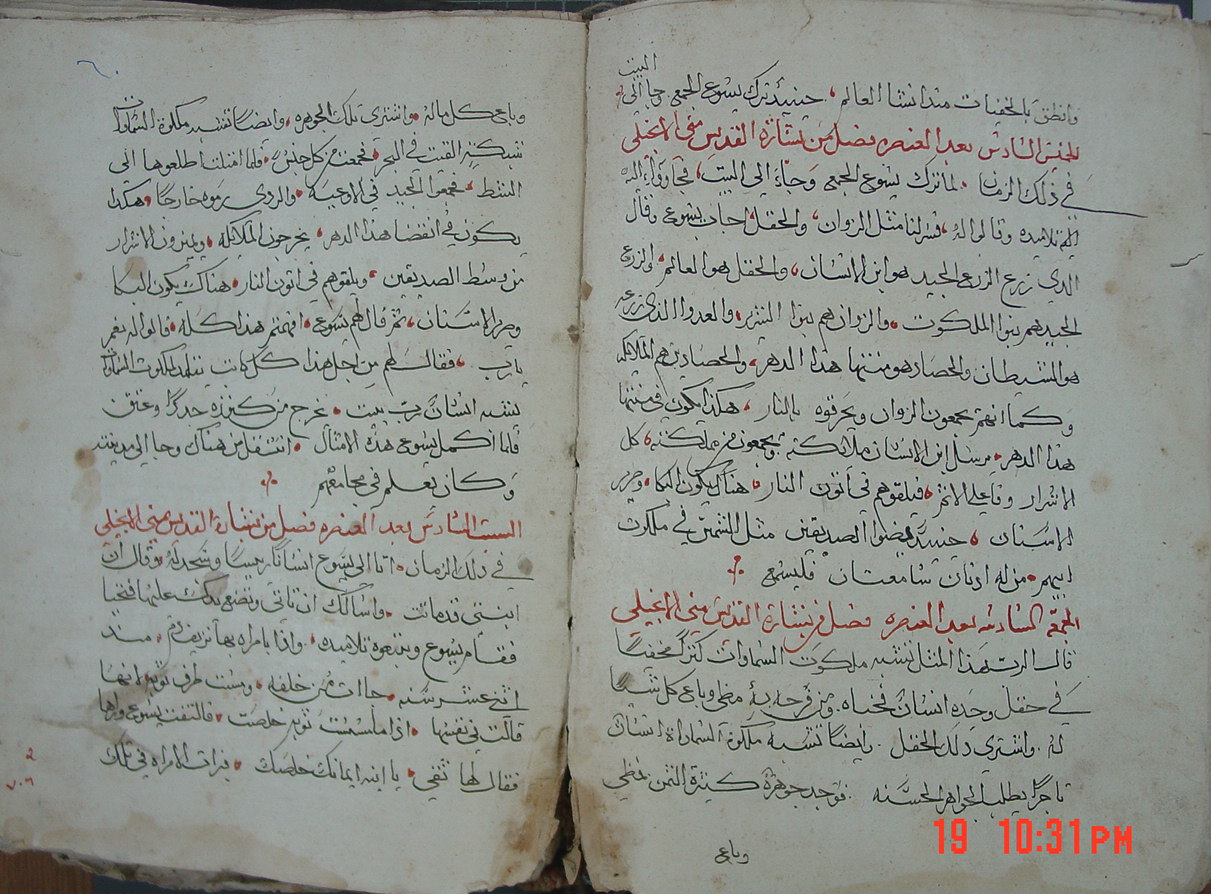 البيت
وانطق بالخفيات منذ انشا العالم، حينيذ ترك يسوع الجمع وجا الى
الخميس السادس بعد العنصره فصل من بشارة القديس متى الانجيلي
في ذلك الزمان لما ترك يسوع الجمع وجاء الى البيت، فجاوا اليه
تلاميذه وقالوا له، فسر لنا مثل الزوان، والحقل اجاب يسوع وقال
الذي زرع الزرع الجيد هو ابن الانسان، والحقل هو العالم، الزرع
الجيد هم بنوا الملكوت، والزوان هم بنوا الشرير، والعدو الذي زرعه
هو الشيطان والحصاد هو منتها هذا الدهر، والحصادين هم الملايكه
وكما انهم يجمعون الزوان ويحرقوه بالنار، هكذا يكون في منتها
هذا الدهر، يرسل ابن الانسان ملائكته ويجمعون من مملكته، كل
الاشرار وفاعلي الاثم، فيلقوهم في اتون النار، هناك يكون البكا، وصرير
الاسنان، حينيذ يضوا الصديقين مثل الشمس في ملكوت
ابيهم، من له اذنان سامعتان فليسمع
الجمعه السادسه بعد العنصره فصل من بشارة القديس متى الانجيلي
قال الرب هذا المثل تشبه ملكوت السماوات كنزا مخفيا
في حقل وجده انسان فخباه، ومن فرحه به مضى وباع كل شيا
له واشترى ذلك الحقل وايضا تشبه ملكوة السماوات انسان
تاجرا يطلب الجواهر الحسنه فوجد جوهرة كثيرة الثمن فمضى
وباع
وباع كل ماله، واشترى تلك الجوهره، وايضا تشبه ملكوة السماوات
شبكة القيت في البحر، فجمعت من كل جنس، فلما امتلت اطلعوها الى
الشط، فجمعوا الجيد في الاوعيه، والردي رموه خارجا، هكذا
يكون في انقضا هذا الدهر، يخرجون الملايكه، ويميزون الاشرار
من وسط الصديقين، ويلقوهم في اتون النار، هناك يكون البكا
وصرير الاسنان، ثم قال لهم يسوع، افهمتم هذا كله، قالوا له نعم
يارب، فقال لهم من اجل هذا كل كاتب يتلمذ لملكوت السماوات
يشبه انسان رب بيت، يخرج من كنزه جددا وعتق
فلما اكمل يسوع هذه الامثال، انتقل من هناك وجا الى مدينته
وكان يعلم في مجامعهم
السبت السادس بعد العنصره فصل من بشارة القديس متى الانجيلي
في ذلك الزمان، اتا الى يسوع انسانا رييسا وسجد له، وقال ان
ابنتي قد ماتت، واسالك ان تاتي وتضع يدك عليها فتحيا
فقام يسوع وتبعوه تلاميذه، واذا بامراه بها نزيف دم، منذ
اثنى عشر سنه، جاات من خلفه، ومست طرف ثوبه لانها
قالت في نفسها، اذا ما لمست ثوبه خلصت، فالتفت يسوع وراها
فقال لها ثقي، يا ابنه ايمانك خلصك، فبرات الامراه في تلك
19 10:31 PM